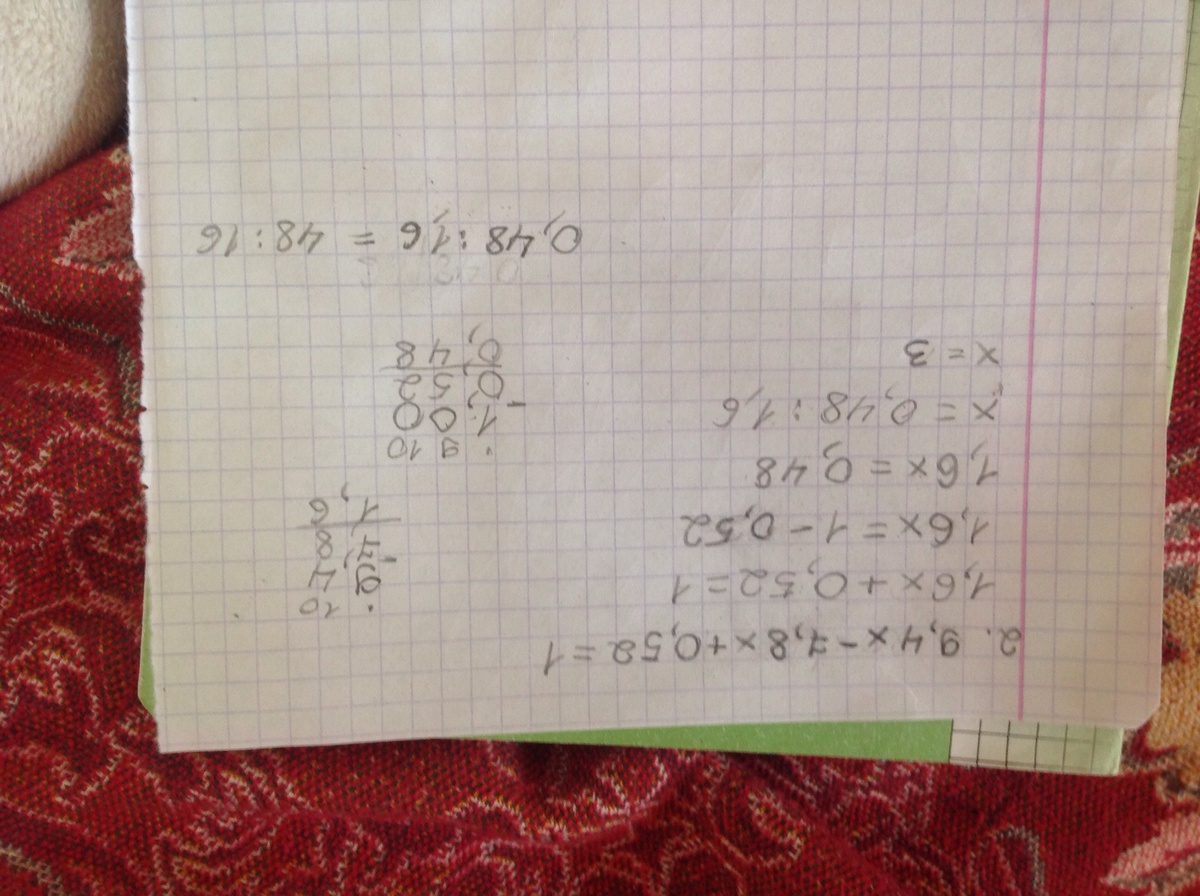 2. 9,4x - 7,8x + 0,52 = 1
1,6x + 0,52 = 1
1,6x = 1 - 0,52
1,6x = 0,48
x = 0,48 : 1,6
x = 3
. 10
9,4
-
7,8
1,6
. 9 10
1,00
-
0,52
0,48
0,48 : 1,6 = 48 : 16